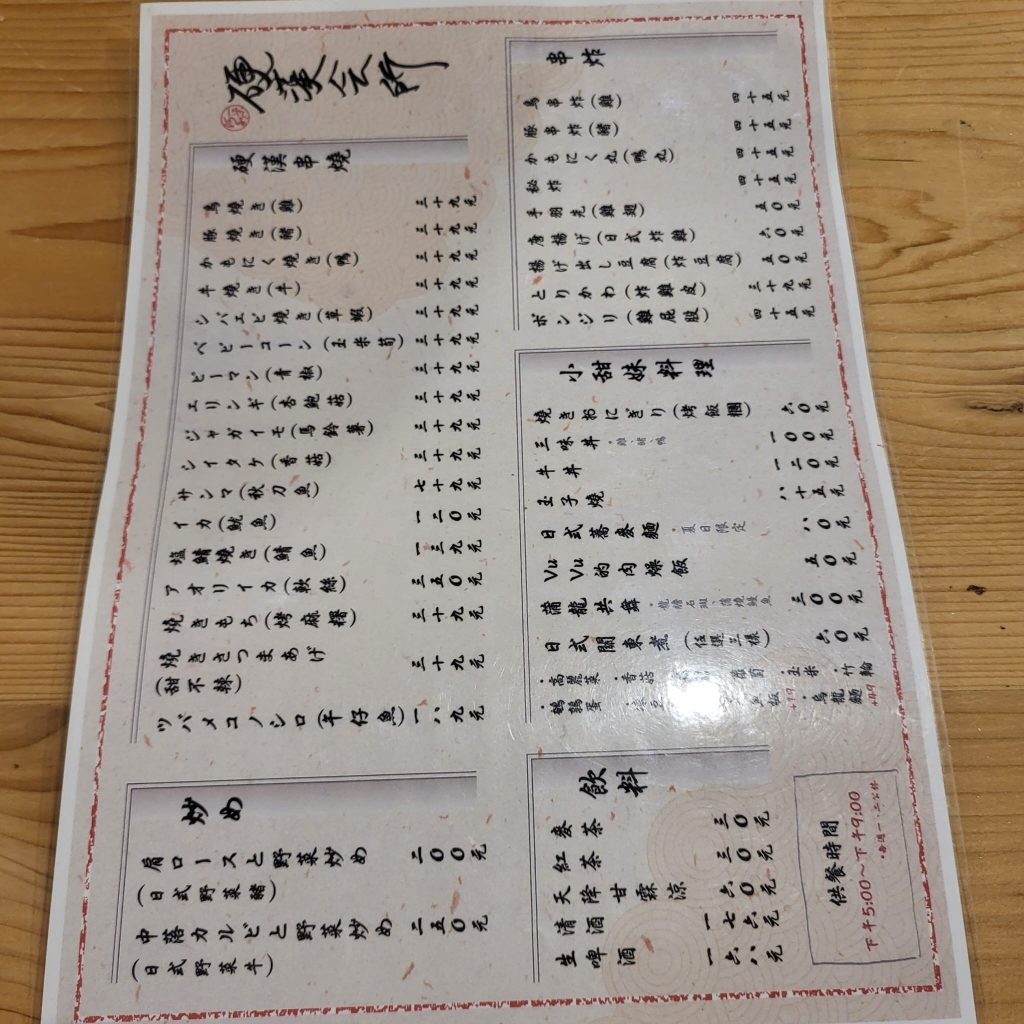 硬漢串燒
鳥燒き(雞) 三十九元
豚燒き(豬) 三十九元
かもにく燒き(鴨) 三十九元
牛燒き(牛) 三十九元
シバエビ燒き(草蝦) 三十九元
ベビーコーン(玉米筍) 三十九元
ピーマン(青椒) 三十九元
エリンギ(杏鮑菇) 三十九元
ジャガイモ(馬鈴薯) 三十九元
シイタケ(香菇) 三十九元
サンマ(秋刀魚) 七十九元
イカ(魷魚) 一二0元
塩鯖燒き(鯖魚) 一三九元
アオリイカ(軟絲) 三五0元
燒きもち(烤麻糬) 三十九元
燒きさつまあげ 三十九元
(甜不辣)
ツバメコノシロ(午仔魚) 一八九元
炒め
肩ロースと野菜炒め 二00元
(日式野菜豬)
中落カルビと野菜炒め 二五0元
(日式野菜牛)
串炸
鳥串炸(雞) 四十五元
豚串炸(豬) 四十五元
かもにく丸(鴨丸) 四十五元
秘炸 四十五元
手羽先(雞翅) 五0元
唐揚げ(日式炸雞) 六0元
揚げ出し豆腐(炸豆腐) 五0元
とりかわ(炸雞皮) 三十九元
ボンジリ(雞屁股) 四十五元
小甜妹料理
燒きおにぎり(烤飯糰) 六0元
三味丼 ·雞、豬、鴨 一00元
牛丼 一二0元
玉子燒 八十五元
日式蕎麥麵 ·夏日限定 八0元
Vu Vu的肉燥飯 五0元
蒲龍共舞 ·龍膽石斑、蒲燒鰻魚 三00元
日式關東煮(任選三樣) 六0元
·高麗菜 ·香菇 ·玉米 ·竹輪
·鵪鶉蛋 ·烏龍麵
飲料
麥茶 三0元
紅茶 三0元
天降甘霖涼 六0元
清酒 一七六元
生啤酒 一六八元
供餐時間
下午5:00～下午9:00
·每週一、二公休